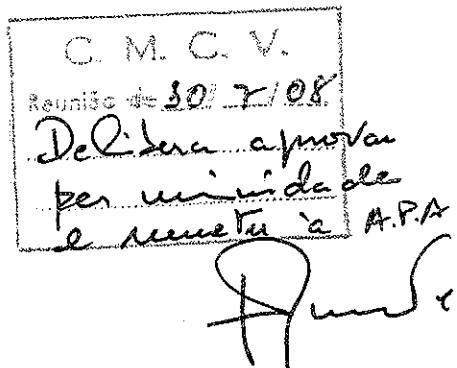 C. M. C. V.
Reunião de 30/7/08
Delibera aprovar
por unanimidade
e remeter à A.P.A